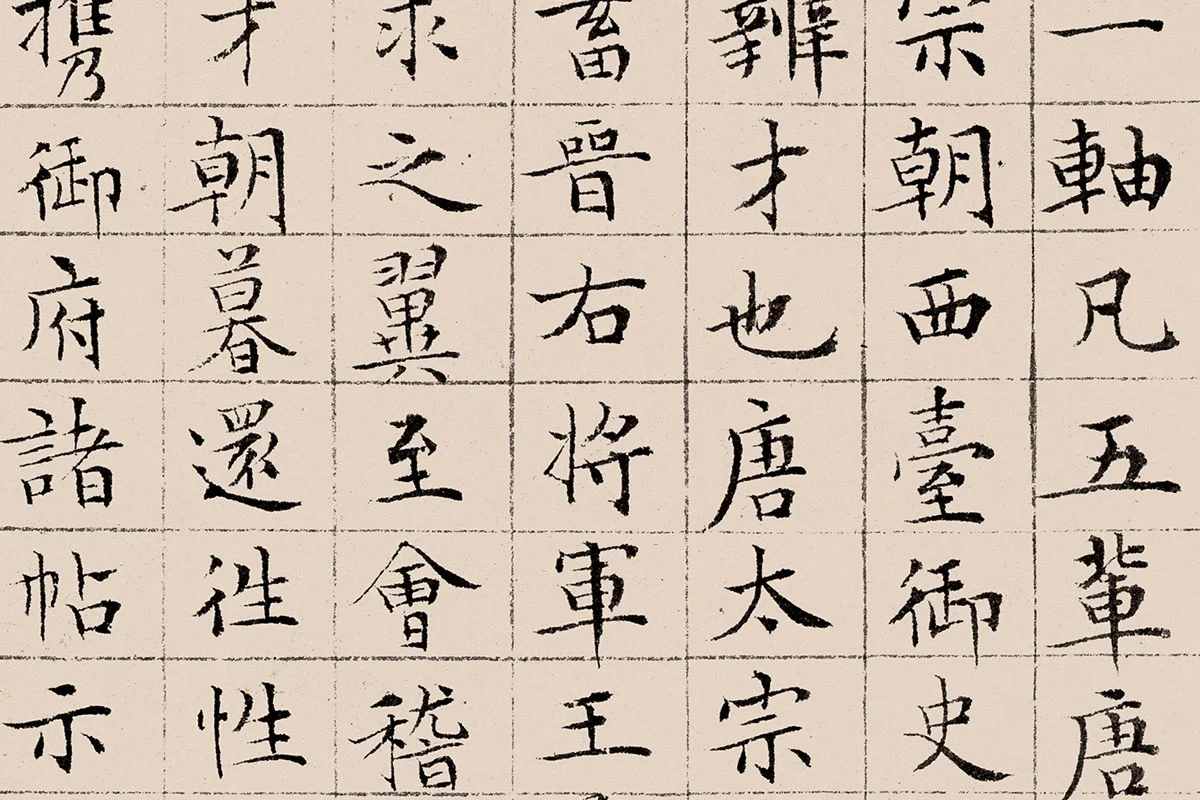 一軸凡五輩唐
宗朝西臺御史
辯才也唐太宗
畜晉右將軍王
求之翼至會稽
才朝暮還徃性
携御府諸帖示